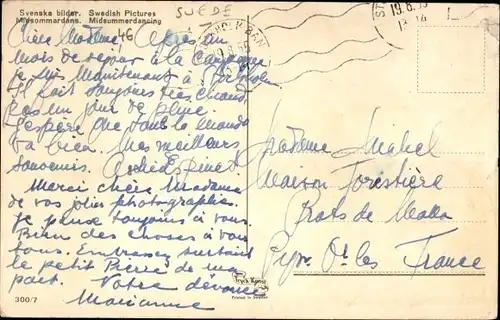 Svenska bilder. Swedish Pictures
Midsommardans. Midsummerdancing
SUEDE
46
Chère Madame, Après un
mois de séjour à la Campagne
je suis maintenant à
Il fait toujours très chaud
pas un jour de pluie.
J'espère que tout le monde
va bien. Mes meilleurs
souvenirs.
Merci chère Madame
de vos jolies photographies.
Je pense toujours à vous.
Bien des choses à vous
tous. Embrassez surtout
le petit Pierre de ma
part. Votre dévouée
Marianne
300/7
Printed in Sweden
19.8.55
Madame Michel
Maison Forestière
Prats de Mollo
Pyr. Or. les France